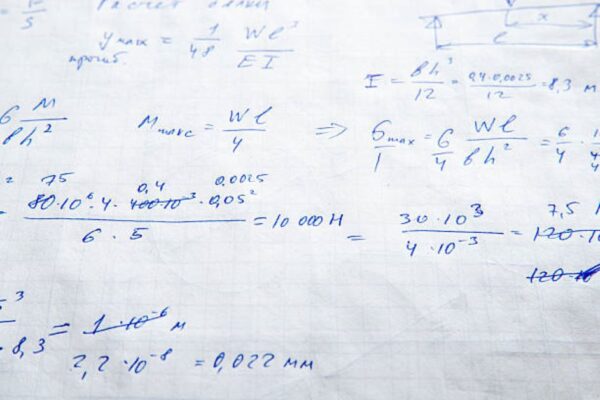 Расчет балки
y max = 1/48 Wl³/EI
прогиб.
x
l
I = bh³/12 = 0,4·0,0025/12 = 8,3 м
6 M/bh²
M макс = Wl/4 ⇒ σ max = 6/4 Wl/bh² = 6/4 ·
75 0,4 0,0025
80·10⁶·4·400·10⁻³·0,05²/6·5 = 10 000 Н
= 30·10³/4·10⁻³ = 120·10
7,5
120·10
³/·8,3 = 1·10⁻⁶ м
2,2·10⁻⁸ = 0,022 мм